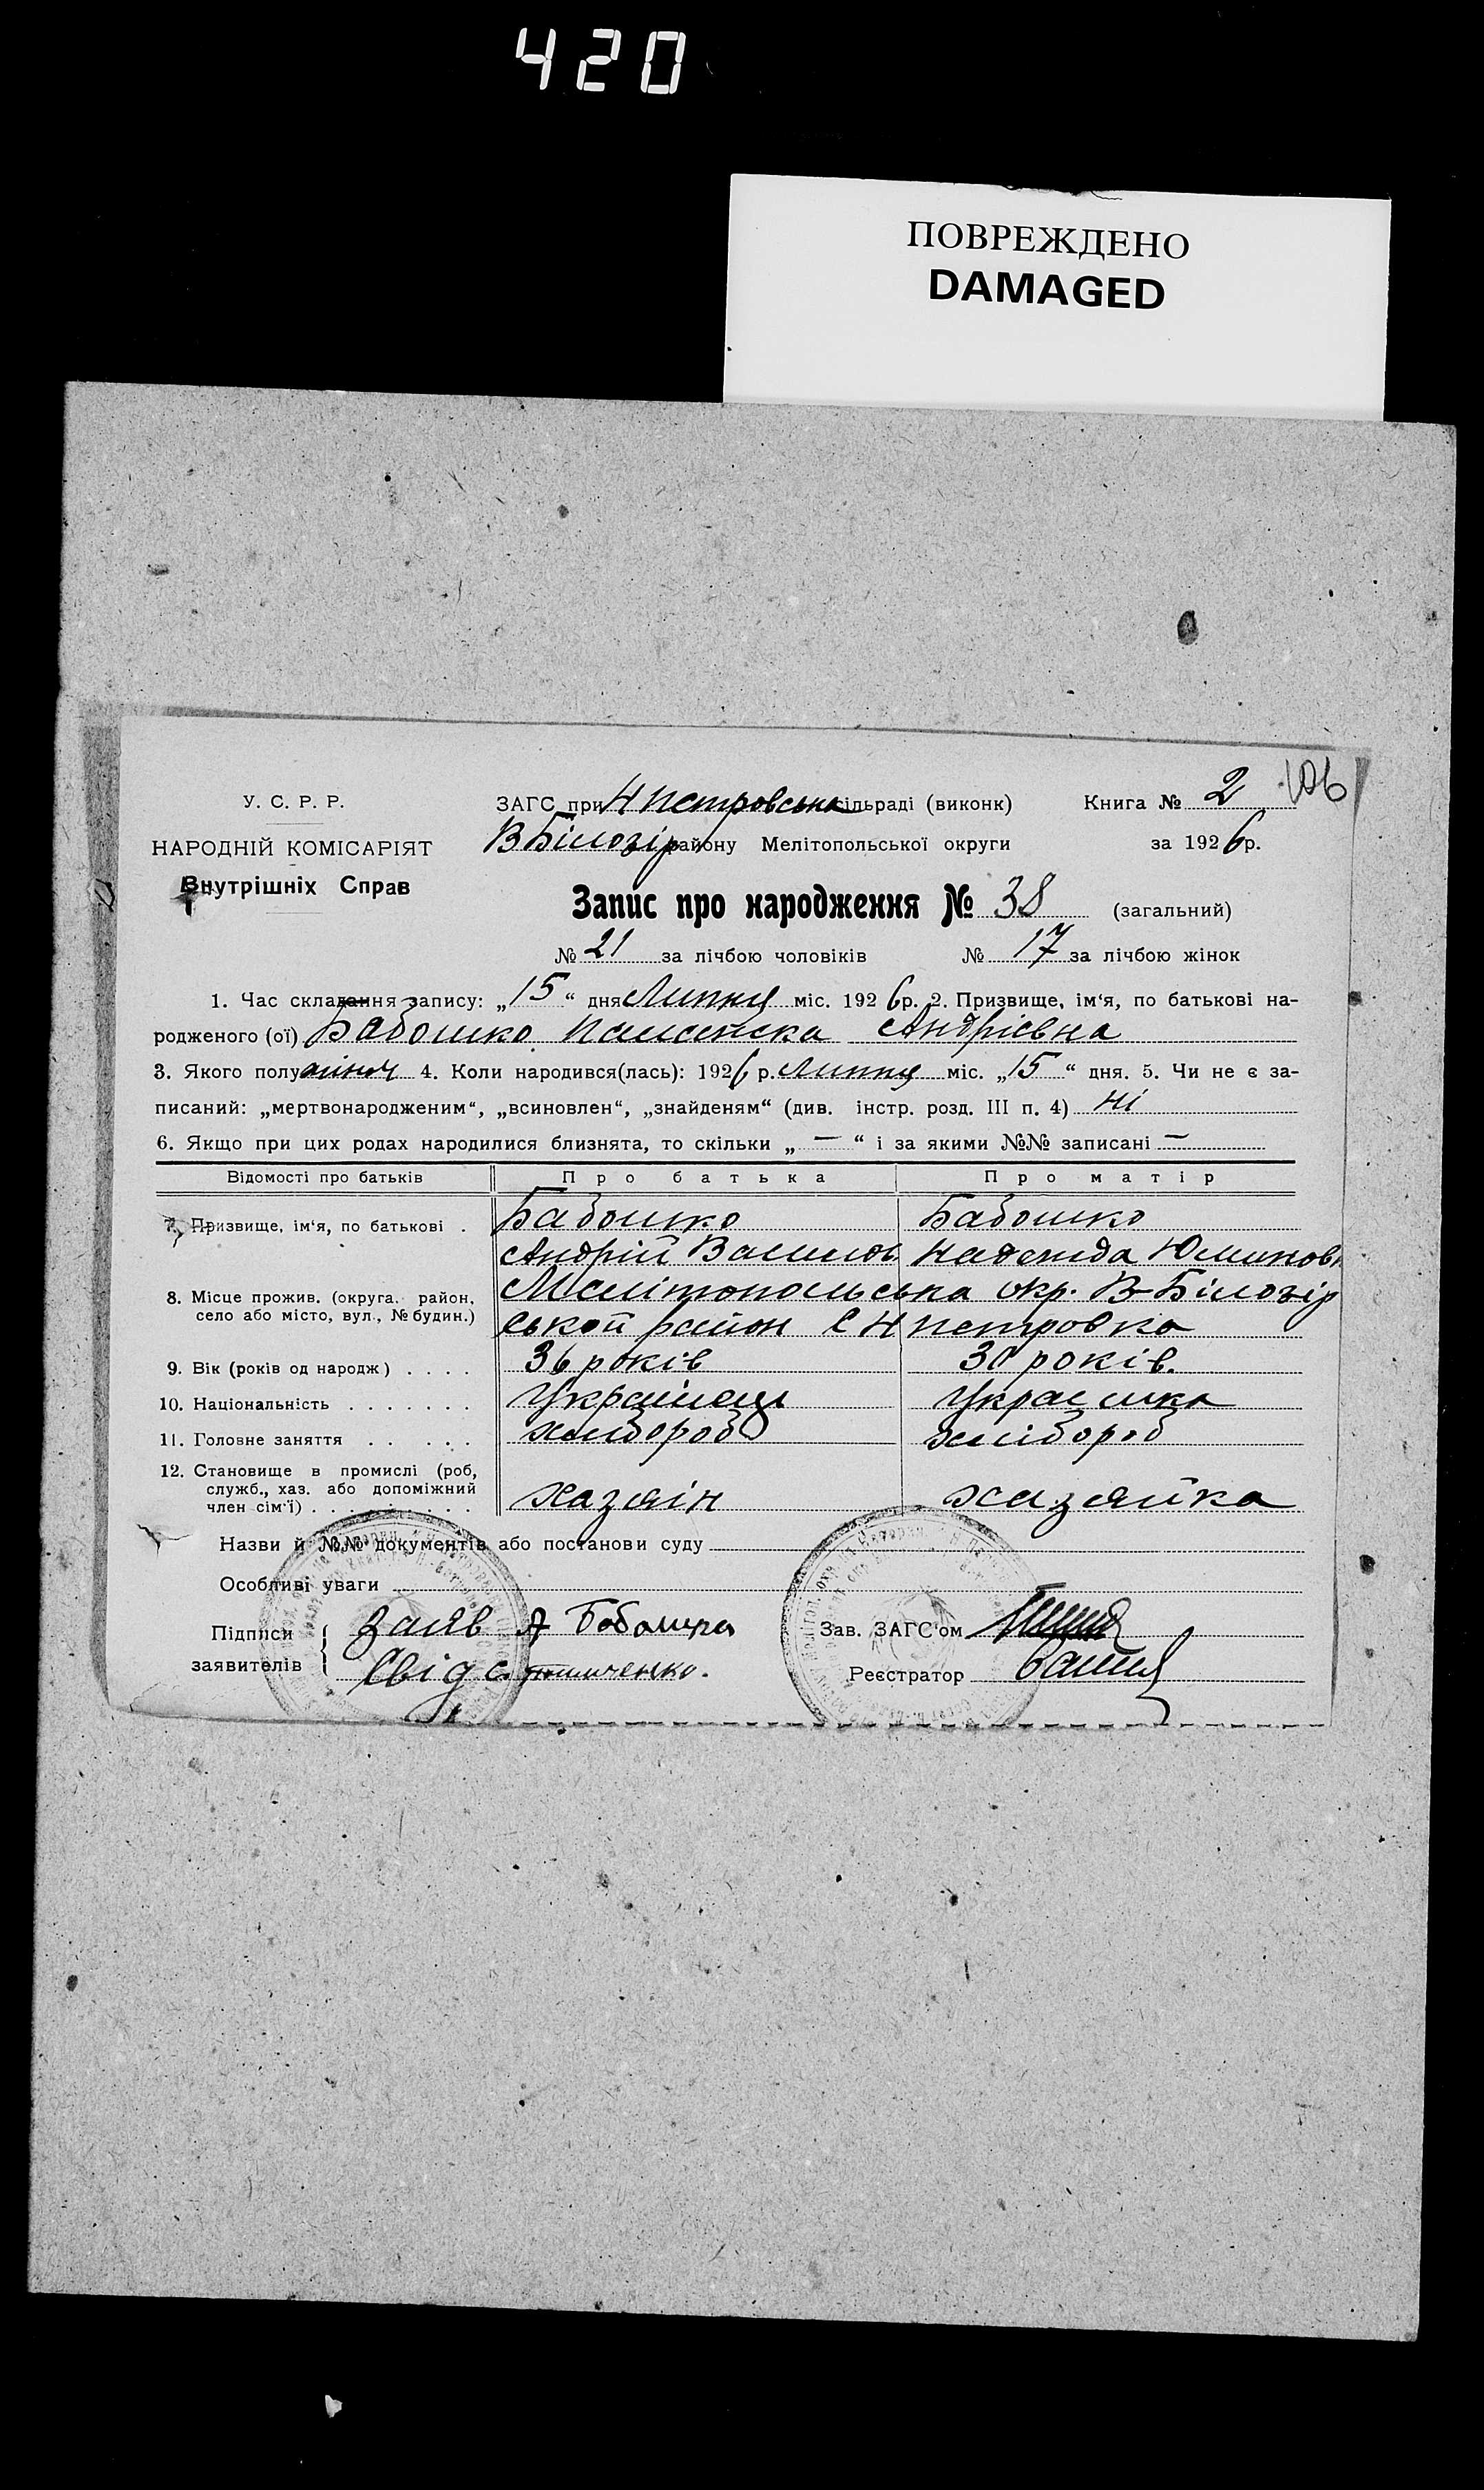 420
ПОВРЕЖДЕНО
DAMAGED
106
У. С. Р. Р.
НАРОДНІЙ КОМІСАРІЯТ
Внутрішніх Справ
ЗАГС при Н Петровська сільраді (виконк) Книга № 2
В Білозір району Мелітопольської округи за 1926 р.
Запис про народження № 38 (загальний)
№ 21 за лічбою чоловіків № 17 за лічбою жінок
1. Час складання запису: „15“ дня Липня міс. 1926 р. 2. Призвище, ім‘я, по батькові на-
родженого (ої) Бабошко Андрієвна
3. Якого полу жіноч 4. Коли народився(лась): 1926 р. Липня міс. „15“ дня. 5. Чи не є за-
писаний: „мертвонародженим“, „всиновлен“, „знайденям“ (див. інстр. розд. III п. 4) Ні
6. Якщо при цих родах народилися близнята, то скільки „—“ і за якими №№ записані —
Відомості про батьків Про батька Про матір
7. Призвище, ім‘я, по батькові . Бабошко Бабошко
Андрій Васильов Надежда
8. Місце прожив. (округа, район, село або місто, вул., № будин.) Мелітопольська Окр. В-Білозір
ськой район С Н Петровка
9. Вік (років од народж) . . . . 36 років 30 років.
10. Національність . . . . . . . Українець Украінка
11. Головне заняття . . . . . . хлібороб хлібороб
12. Становище в промислі (роб, служб., хаз. або допоміжний член сім‘ї) . . . . . . . . . хазяін хазяйка
Назви й №№ документів або постанови суду
Особливі уваги
Підписи заявителів Заяв А Бабошко
Свід
Зав. ЗАГС‘ом
Реєстратор